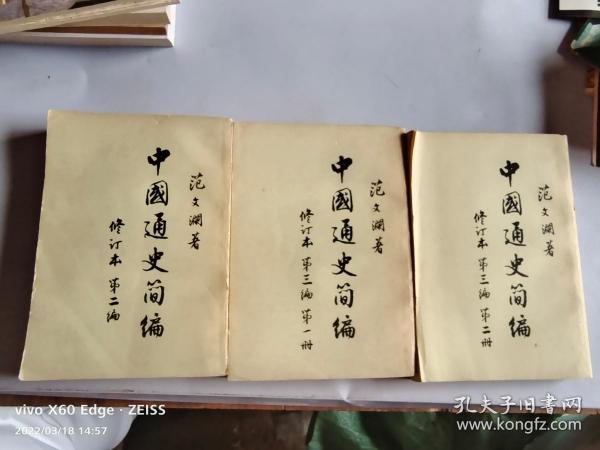 范文瀾著
中國通史简编
修订本 第二编
范文瀾著
中國通史简编
修订本 第三编 第一册
范文瀾著
中國通史简编
修订本 第三编 第二册
vivo X60 Edge · ZEISS
2022/03/18 14:57
孔夫子旧书网
www.kongfz.com